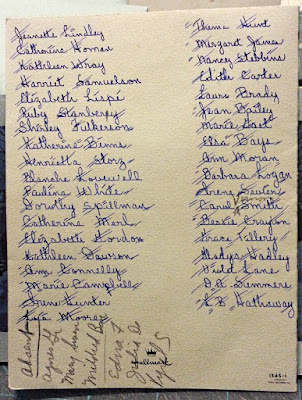 Jeanette Lindley
Catherine Homan
Kathleen Wray
Harriet Samuelson
Elizabeth Lispé
Ruby Stanberry
Shirley Fulkerson
Katherine Binns
Henrietta Storz
Blanche
Paulina White
Dorothy Spillman
Catherine Merl
Elizabeth Gordon
Kathleen Dawson
Ann Connelly
Marie Campbell
Irene Hunter
Moore
Thema Hunt
Margaret James
Nancy Stebbins
Edith Carter
Laura Brady
Jean Bailey
Marie
Elsa Bays
Ann Moran
Barbara Logan
Irene
Carol Smith
Bessie Crayton
Grace Tillery
Gladys Hadley
Lane
D.A. Summers
L.B. Hathaway
absent
Agnes
Mary
Mildred
Edna
Hallmark